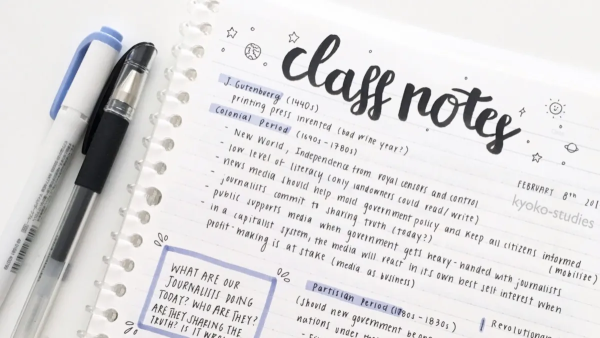 class notes
J. Gutenberg (1440s)
printing press invented (bad wine year?)
Colonial Period (1690s - 1780s)
- New World, Independence from royal censors and control
- low level of literacy (only landowners could read/write)
- news media should help mold government policy and keep all citizens informed (mobilize)
- journalists commit to sharing truth (today?)
- public supports media when government gets heavy-handed with journalists
- in a capitalist system, the media will react in its own best self interest when
profit-making is at stake (media as business)
FEBRUARY 8TH 201
kyoko-studies
WHAT ARE OUR
JOURNALISTS DOING
TODAY? WHO ARE THEY?
ARE THEY SHARING THE
TRUTH? IS IT
Partisian Period (1780s - 1830s)
(should new government be
nations under
Revolutionary